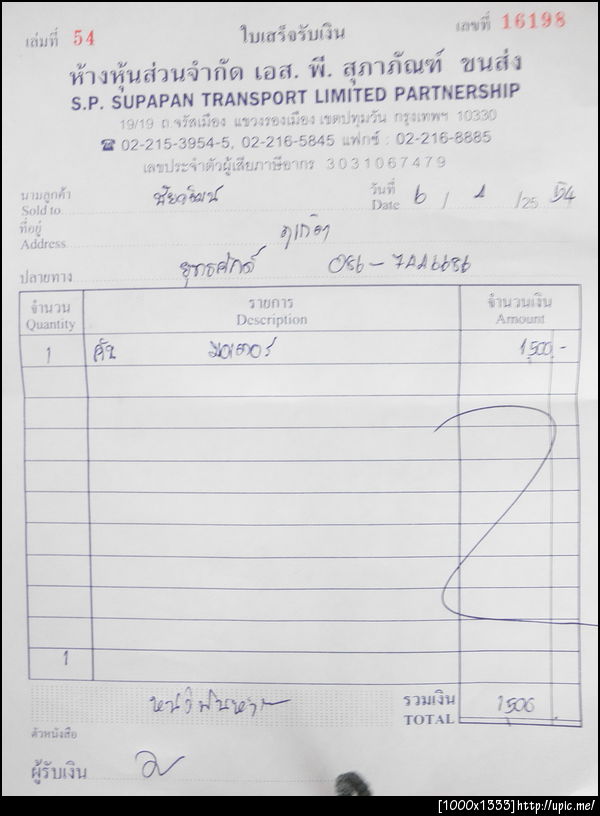 เล่มที่ 54 ใบเสร็จรับเงิน เลขที่ 16198
ห้างหุ้นส่วนจำกัด เอส. พี. สุภาภัณฑ์ ขนส่ง
S.P. SUPAPAN TRANSPORT LIMITED PARTNERSHIP
19/19 ถ.จรัสเมือง แขวงรองเมือง เขตปทุมวัน กรุงเทพฯ 10330
☎ 02-215-3954-5, 02-216-5845 แฟกซ์ : 02-216-8885
เลขประจำตัวผู้เสียภาษีอากร 3031067479
นามลูกค้า วันที่
Sold to ชัยวัฒน์ Date 6 / 1 /25 54
ที่อยู่
Address ภูเก็ต
ปลายทาง ยุทธศักดิ์ 086-7446686
จำนวน รายการ จำนวนเงิน
Quantity Description Amount
1 คัน 1,500.-
1
รวมเงิน 1500
TOTAL
ตัวหนังสือ
ผู้รับเงิน
[1000x1333]http://upic.me/